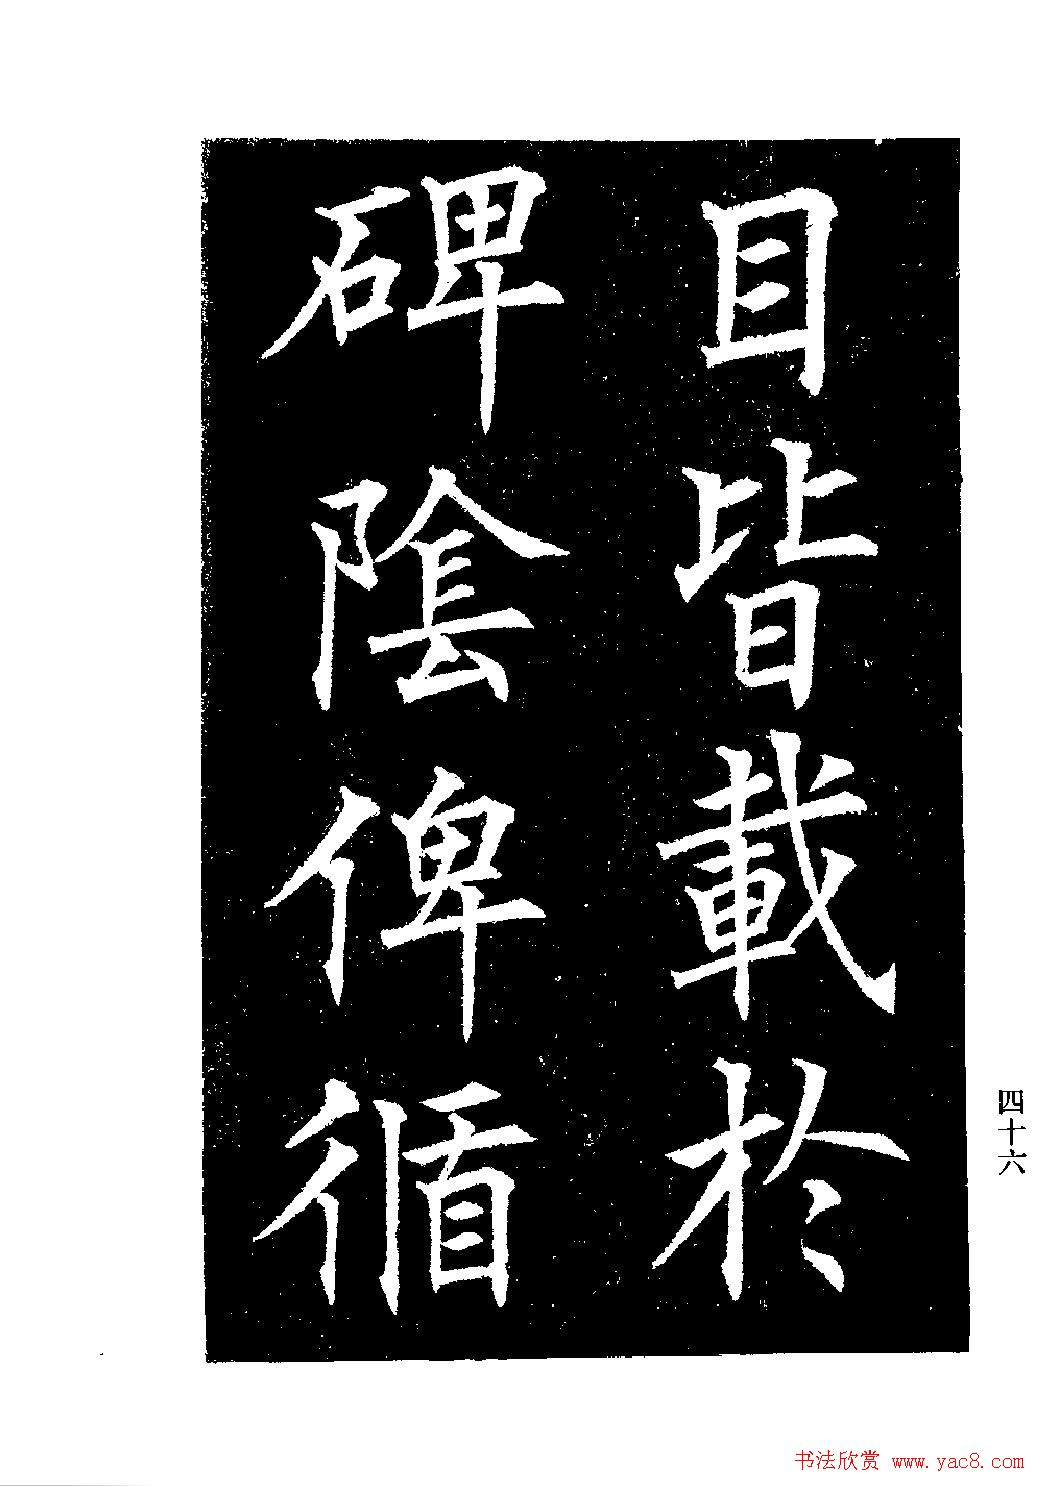 目皆載於
碑陰俾循
四十六
书法欣赏 www.yac8.com